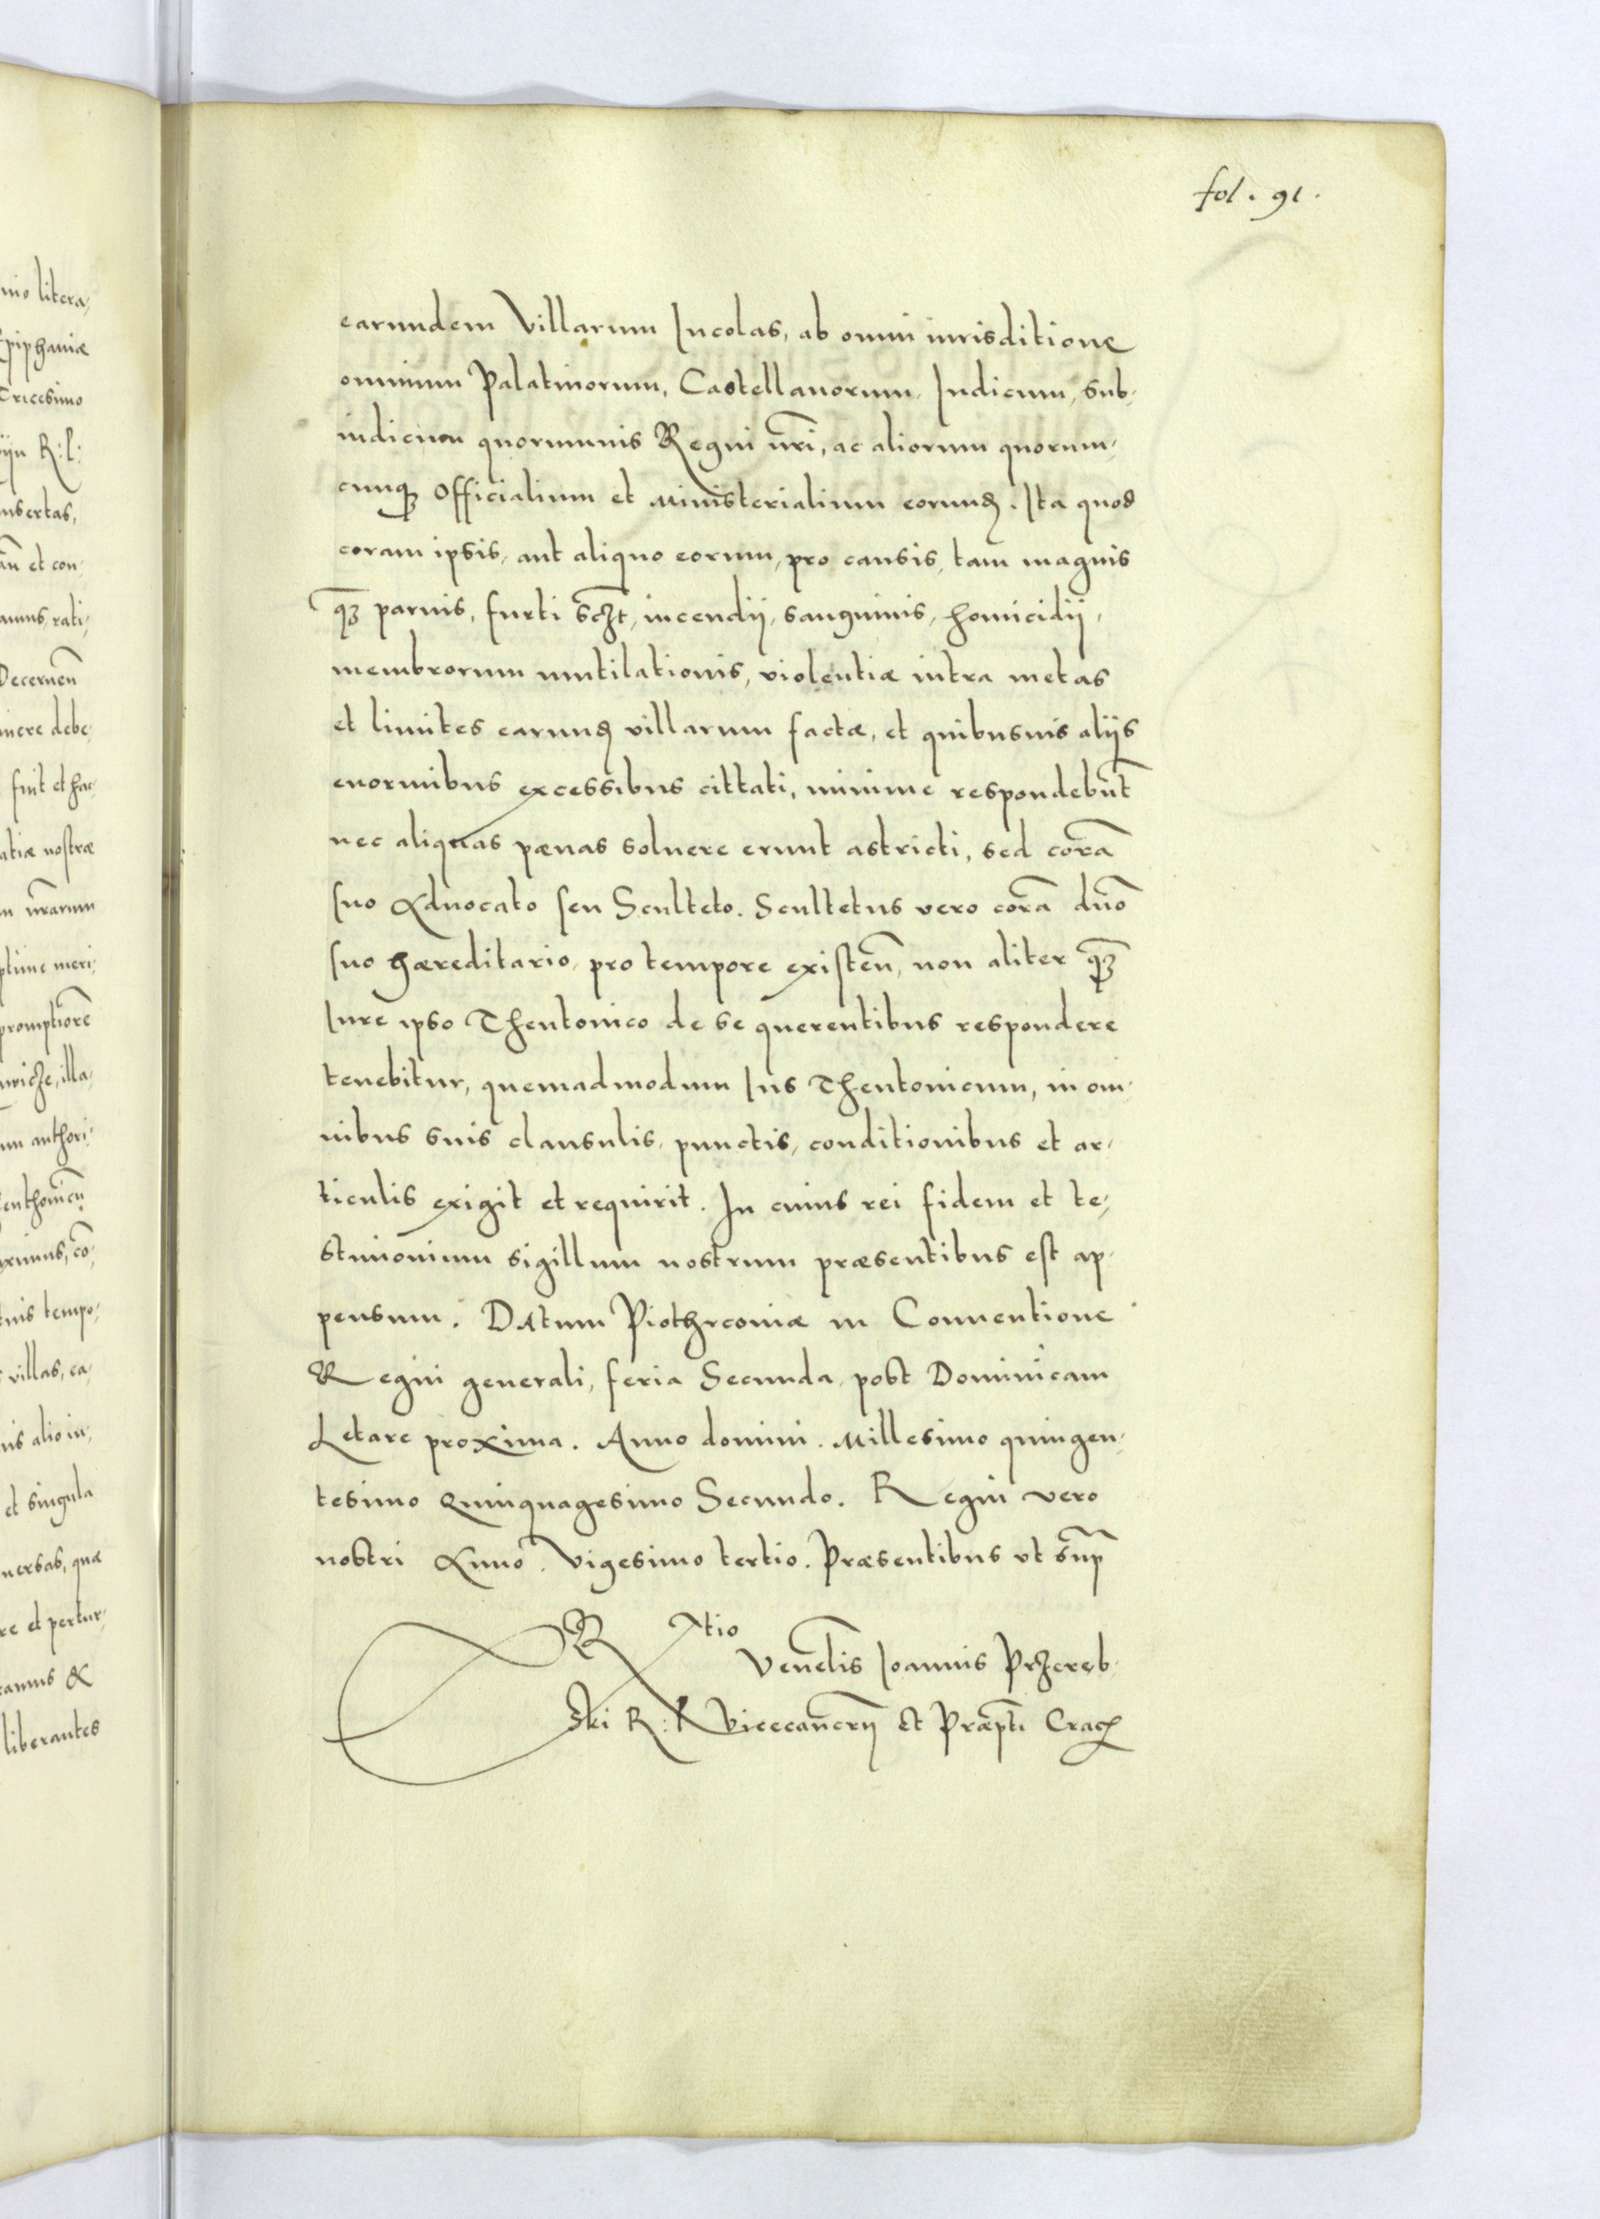 fol. 91.
earundem Villarum Incolas, ab omni iurisditione
omnium Palatinorum, Castellanorum, Iudicum, sub-
iudicum quorumuis Regni nr̃i, ac aliorum quorum-
cunqꝫ Officialium et Ministerialium eorunꝺ. Ita quod
coram ipsis, aut aliquo eorum, pro causis, tam magnis
qꝫ̃ paruis, furti sczt̃, incendij, sanguinis, homicidij,
membrorum mutilationis, violentiæ intra metas
et limites earunꝺ villarum factæ, et quibusuis alijs
enormibus excessibus cittati, minime respondebũt
nec aliquas pœnas soluere erunt astricti, sed corã
suo Aduocato seu Sculteto. Scultetus vero corã dño
suo hæreditario, pro tempore existeñ, non aliter qꝫ̃
Iure ipso Theutonico de se querentibus respondere
tenebitur, quemadmodum Ius Theutonicum, in om-
nibus suis clausulis, punctis, conditionibus et ar-
ticulis exigit et requirit. In cuius rei fidem et te-
stimonium sigillum nostrum præsentibus est ap-
pensum. DAtum Piothrcouiæ in Conuentione
Regni generali, feria Secunda, post Dominicam
Letare proxima. Anno domini. Millesimo quingen-
tesimo Quinquagesimo Secundo. Regni vero
nostri Anno. Vigesimo tertio. Præsentibus vt sup̃
R tio
Veneľlis Ioannis Przeręb-
ski R: P Vicecancrij Et Præpti Crac
mo litera-
Epiphaniæ
Tricesimo
R: P:
nsertas,
et con-
amus, rati-
Decerneñ
inere debe-
fuit et hac-
atiæ nostræ
nr̃arum
ptime meri-
promptiorẽ
illa-
um authori-
eutonicũ
cõ-
uis tempo-
villas, ca-
uis alio in-
et singula
uersas, quæ
re et pertur-
amus &
liberantes